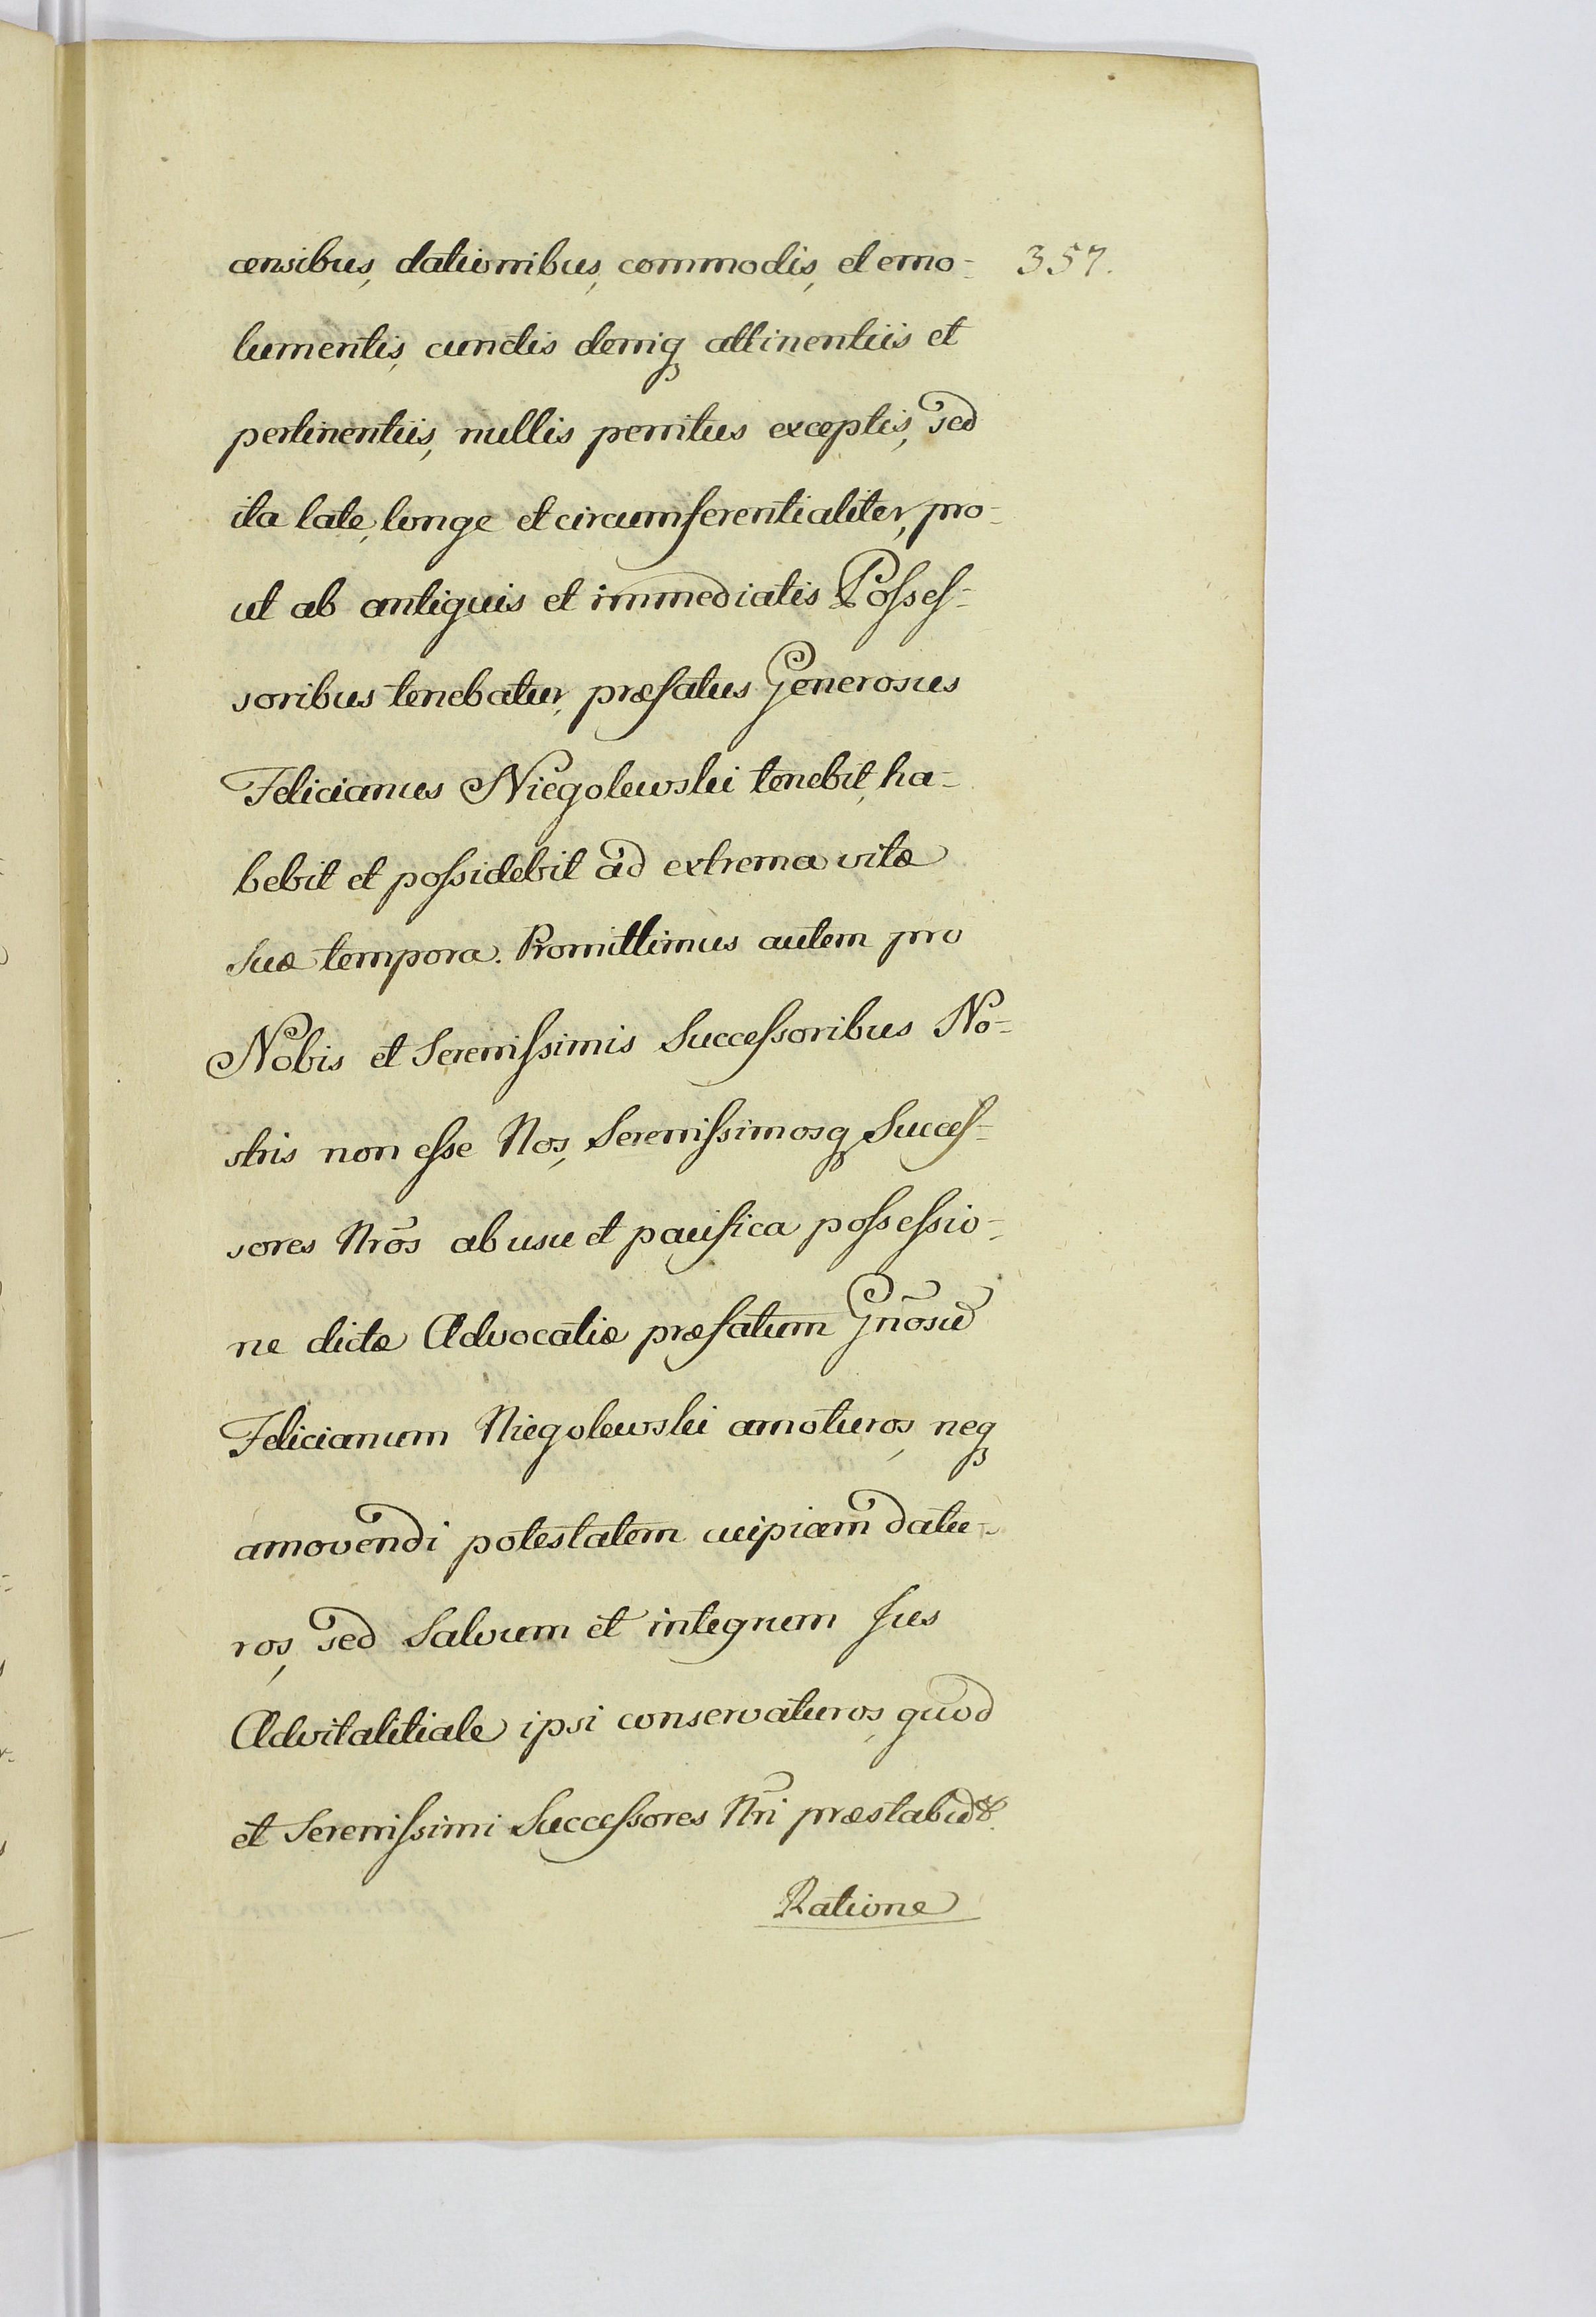 censibus, dationibus, commodis, et emo-
357.
lumentis, cunctis deniq, attinentiis et
pertinentiis, nullis penitus exceptis, sed
ita late, longe et circumferentialiter, pro-
ut ab antiquis et immediatis Posses-
soribus tenebatur, præfatus Generosus
Felicianus Niegolewski tenebit, ha-
bebit et possidebit ad extrema vitæ
suæ tempora. Promittimus autem pro
Nobis et Serenissimis Successoribus No-
stris non esse Nos, Serenissimosq, Succes-
sores Nrõs ab usu et pacifica possessio-
ne dictæ Advocatiæ præfatum Gnõsũ
Felicianum Niegolewski amoturos, neq,
amovendi potestatem cuipiam datu-
ros, sed Salvum et integrum Jus
Advitalitiale ipsi conservaturos, quod
et Serenissimi Successores Nri præstabũt.
Ratione